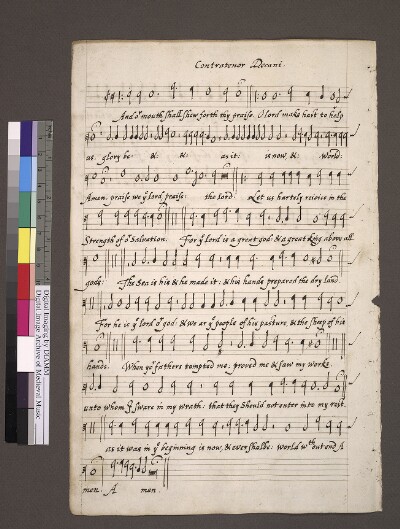 Contratenor Decani.
And or mouth shall shew forth thy praise. O lord make hast to help
us. glory be: &: &: as it: is now &: World:
Amen. praise we ye lord praise: the lord Let us hartely rejoice in the
Strength of or Salvation. For ye lord is a great god: & a great King above all
gods: The Sea is his & he made it: & his hands prepared the dry land
For he is ye lord or god: & we ar ye people of his pasture, & the sheep of his
hands. When yor fathers tempted me: proved me & saw my works
unto whom I sware in my wrath: that they should not enter into my rest.
as it was in ye beginning is now, & ever shalbe: world wth out end A
men. A men.
Digital Imaging by DIAMM
Digital Image Archive of Medieval Music